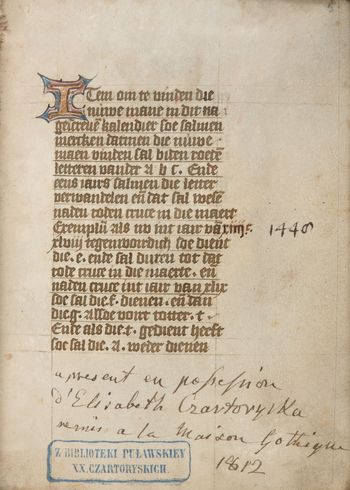 Item om te vinden die
nuwe mane in dit na
gescreuē kalendier soe salmen
mercken datmen die nuwe
maen vinden sal biden roetē
letteren vander a b c. Ende
eens iairs salmen die letter
verwandelen eñ dat sal wesē
naden roden cruce in die maert
Exemplū als nv int iair vā xiiijc
xlviij tegenwordich soe dient
die .e. ende sal duren tot dat
rode cruce in die maerte. eñ
naden cruce int iair van xlix
soe sal die .f. dienen. eñ dan
die g. Alsoe voirt totter .t.
Ende als die .t. gedient heeft
soe sal die .A. weder dienen
1448
a present en possession
d'Elisabeth Czartoryska
remis a la Maison Gothique
1812
Z BIBLIOTEKI PUŁAWSKIEY
XX. CZARTORYSKICH.